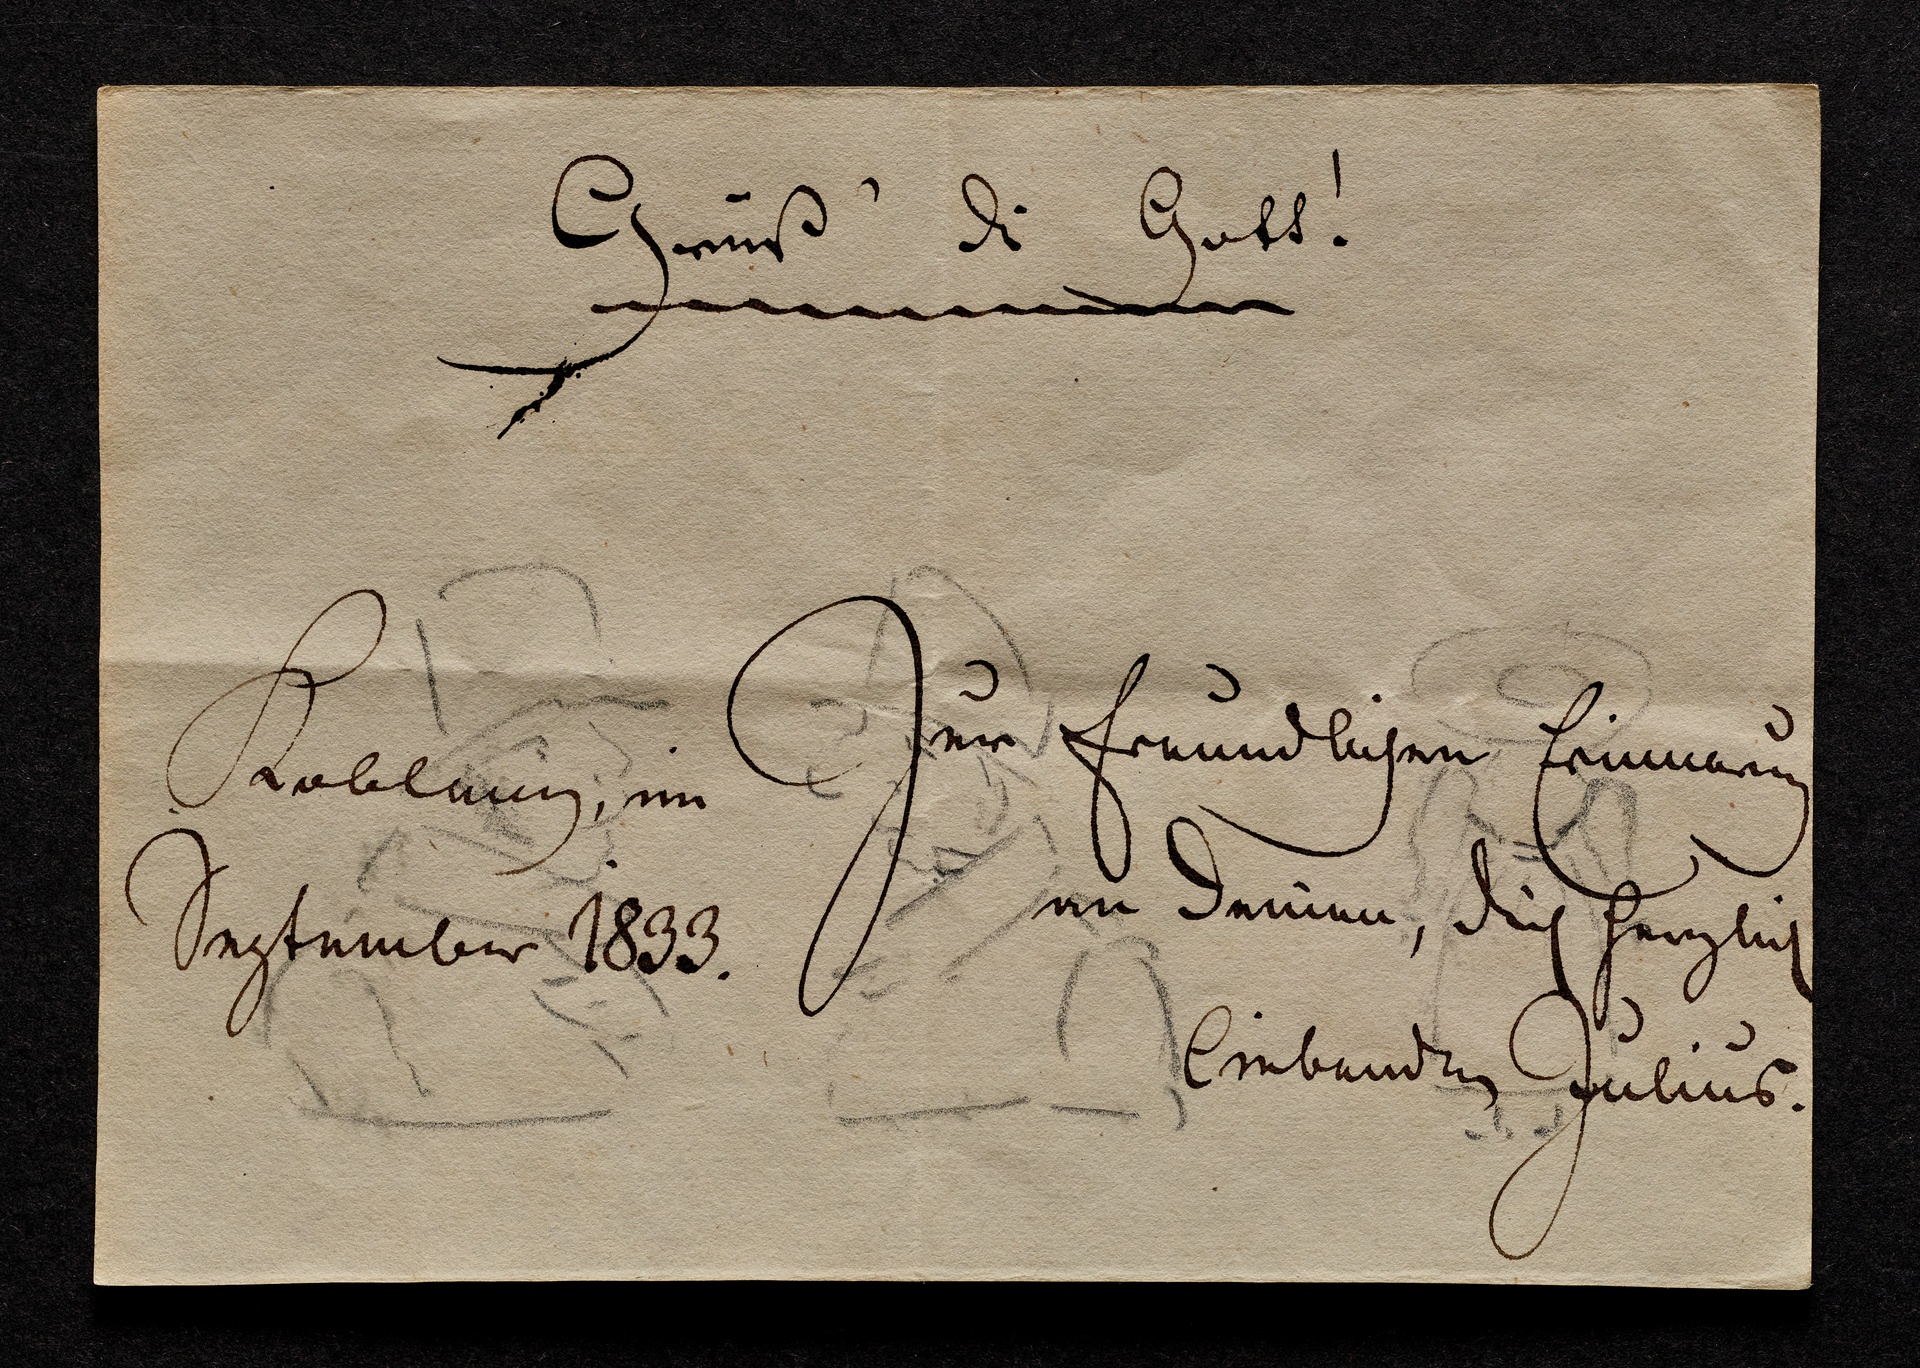 Grüß' di Gott!
Koblenz, im
September 1833.
Zur freundlichen Erinnerung
an Deinen, dich herzlich
liebenden Julius.